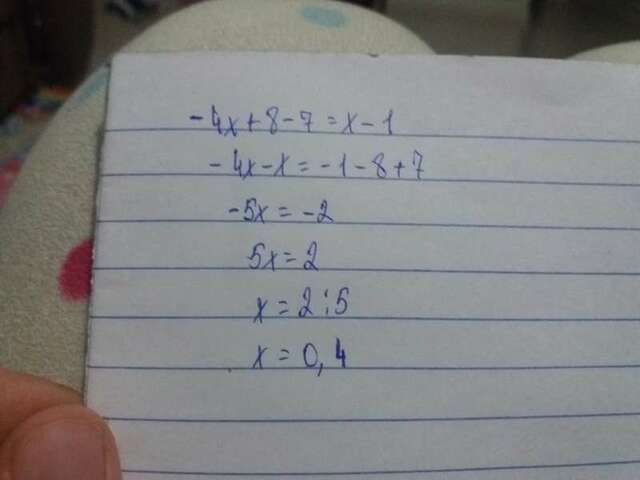 -4x+8-7=x-1
-4x-x=-1-8+7
-5x=-2
5x=2
x=2:5
x=0,4